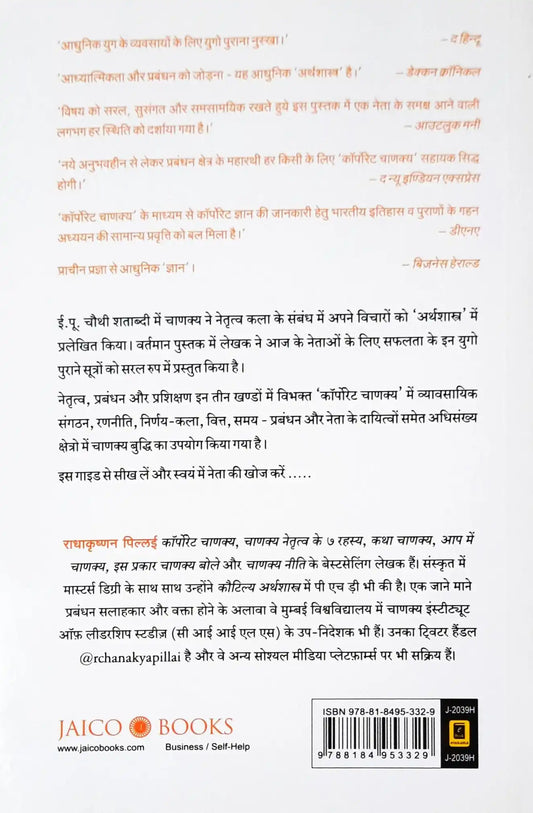 ‘आधुनिक युग के व्यवसायों के लिए युगो पुराना नुस्खा।’ – द हिन्दू
‘आध्यात्मिकता और प्रबंधन को जोड़ना - यह आधुनिक ‘अर्थशास्त्र’ है।’ – डेक्कन क्रॉनिकल
‘विषय को सरल, सुसंगत और समसामयिक रखते हुये इस पुस्तक में एक नेता के समक्ष आने वाली
लगभग हर स्थिति को दर्शाया गया है।’ – आउटलुक मनी
‘नये अनुभवहीन से लेकर प्रबंधन क्षेत्र के महारथी हर किसी के लिए ‘कॉर्पोरेट चाणक्य’ सहायक सिद्ध
होगी।’ – द न्यू इण्डियन एक्सप्रेस
‘कॉर्पोरेट चाणक्य’ के माध्यम से कॉर्पोरेट ज्ञान की जानकारी हेतु भारतीय इतिहास व पुराणों के गहन
अध्ययन की सामान्य प्रवृत्ति को बल मिला है।’ – डीएनए
प्राचीन प्रज्ञा से आधुनिक ‘ज्ञान’। – बिज़नेस हेराल्ड
ई.पू. चौथी शताब्दी में चाणक्य ने नेतृत्व कला के संबंध में अपने विचारों को ‘अर्थशास्त्र’ में
प्रलेखित किया। वर्तमान पुस्तक में लेखक ने आज के नेताओं के लिए सफलता के इन युगो
पुराने सूत्रों को सरल रुप में प्रस्तुत किया है।
नेतृत्व, प्रबंधन और प्रशिक्षण इन तीन खण्डों में विभक्त ‘कॉर्पोरेट चाणक्य’ में व्यावसायिक
संगठन, रणनीति, निर्णय-कला, वित्त, समय - प्रबंधन और नेता के दायित्वों समेत अधिसंख्य
क्षेत्रो में चाणक्य बुद्धि का उपयोग किया गया है।
इस गाइड से सीख लें और स्वयं में नेता की खोज करें .....
राधाकृष्णन पिल्लई कॉर्पोरेट चाणक्य, चाणक्य नेतृत्व के ७ रहस्य, कथा चाणक्य, आप में
चाणक्य, इस प्रकार चाणक्य बोले और चाणक्य नीति के बेस्टसेलिंग लेखक हैं। संस्कृत में
मास्टर्स डिग्री के साथ साथ उन्होंने कौटिल्य अर्थशास्त्र में पी एच ड़ी भी की है। एक जाने माने
प्रबंधन सलाहकार और वक्ता होने के अलावा वे मुम्बई विश्वविद्यालय में चाणक्य इंस्टीट्यूट
ऑफ़ लीडरशिप स्टडीज़ (सी आई आई एल एस) के उप-निदेशक भी हैं। उनका ट्विटर हैंडल
@rchanakyapillai है और वे अन्य सोश्यल मीडिया प्लेटफ़ार्म्स पर भी सक्रिय हैं।
JAICO BOOKS
www.jaicobooks.com Business / Self-Help
ISBN 978-81-8495-332-9
9 788184 953329
J-2039H
J-2039H